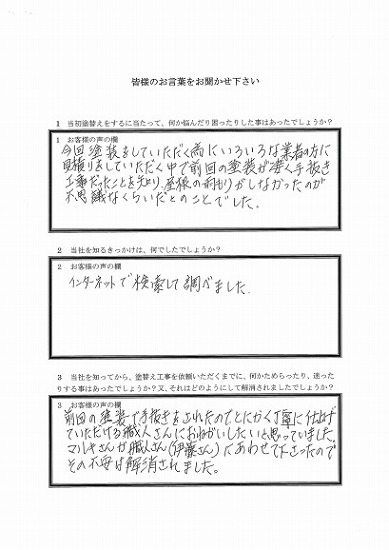 皆様のお言葉をお聞かせ下さい
1 当初塗替えをするに当たって、何か悩んだり困ったりした事はあったでしょうか？
1 お客様の声の欄
今回塗装をしていただく為にいろいろな業者の方に
見積りをしていただく中で前回の塗装が凄く手抜き
工事だったことを知り、屋根の雨もりがしなかったのが
不思議なくらいだとのことでした。
2 当社を知るきっかけは、何でしたでしょうか？
2 お客様の声の欄
インターネットで検索して調べました。
3 当社を知ってから、塗替え工事を依頼いただくまでに、何かためらったり、迷った
りする事はあったでしょうか？又、それはどのようにして解消されましたでしょうか？
3 お客様の声の欄
前回の塗装で手抜きをされたのでとにかく丁寧に仕上げ
ていただける職人さんにおねがいしたいと思っていました。
マルキさんが職人さん(伊藤さん)にあわせて下さったので
その不安は解消されました。